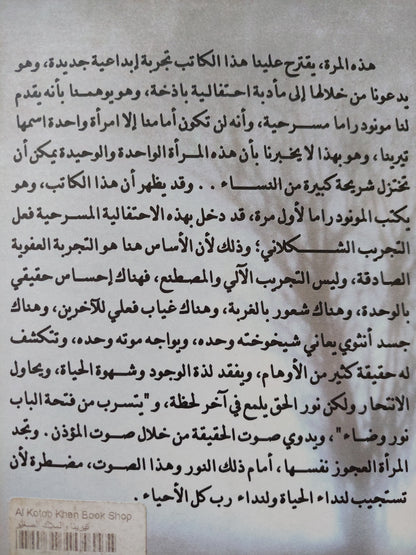 هذه المرة، يقترح علينا هذا الكاتب تجربة إبداعية جديدة، وهو
يدعونا من خلالها إلى مأدبة احتفالية باذخة، وهو يوهمنا بأنه يقدم
لنا مونودراما مسرحية، وأنه لن تكون أمامنا إلا امرأة واحدة اسمها
تيرينا، وهو بهذا لا يخبرنا بأن هذه المرأة الواحدة والوحيدة يمكن أن
تختزل شريحة كبيرة من النساء .. وقد يظهر أن هذا الكاتب، وهو
يكتب المونودراما لأول مرة، قد دخل بهذه الاحتفالية المسرحية فعل
التجريب الشكلاني؛ وذلك لأن الأساس هنا هو التجربة العفوية
الصادقة، وليس التجريب الآلي والمصطنع، فهناك إحساس حقيقي
بالوحدة، وهناك شعور بالغربة، وهناك غياب فعلي للآخرين، وهناك
جسد أنثوي يعاني شيخوخته وحده، ويواجه موته وحده، وتتكشف
له حقيقة كثير من الأوهام، ويفقد لذة الوجود وشهوة الحياة، ويحاول
الانتحار ولكن نور الحق يلمع في آخر لحظة، و"يتسرب من فتحة الباب
نور وضاء"، ويدوي صوت الحقيقة من خلال صوت المؤذن. وتجد
المرأة العجوز نفسها، أمام ذلك النور وهذا الصوت، مضطرة لأن
تستجيب لنداء الحياة ولنداء رب كل الأحياء.
Al Kotob Khan Book Shop